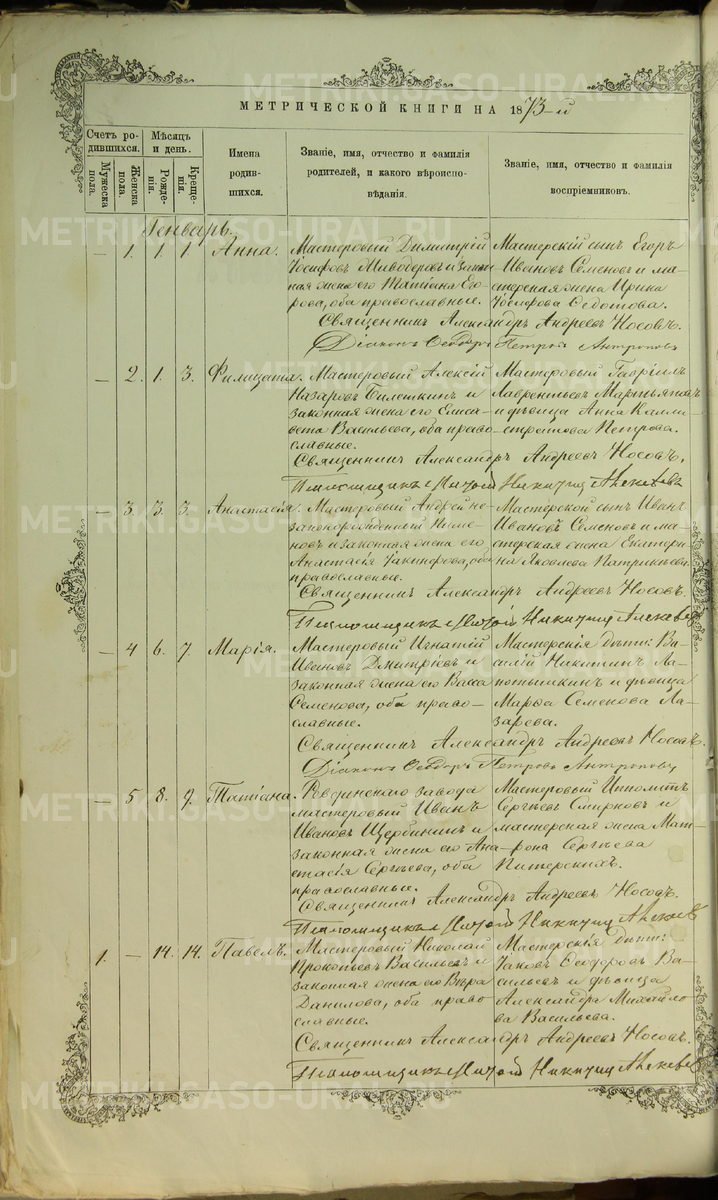 МЕТРИЧЕСКОЙ КНИГИ НА 1873-й
Счетъ родившихся.
Мужеска пола.
Женска пола.
Мѣсяцъ и день.
Рожденія.
Крещенія.
Имена родившихся.
Званіе, имя, отчество и фамилія родителей, и какого вѣроисповѣданія.
Званіе, имя, отчество и фамилія воспріемниковъ.
Генварь.
— 1. 1. 1 Анна.
Мастеровый Димитрій
Іосифовъ и закон-
ная жена его Татіана Его-
рова, оба православные.
Мастерскій сынъ Егоръ
Ивановъ Семеновъ и ма-
стерская жена Ирина
Іосифова Ѳедотова.
Священникъ Александръ Андреевъ Носовъ.
Діаконъ Ѳеодоръ Петровъ Антроповъ
— 2. 1. 3. Филицата.
Мастеровый Алексій
Назаровъ Билешкинъ и
законная жена его Елиса-
вета Васильева, оба право-
славные.
Мастеровый Гавріилъ
Лаврентьевъ Мартьяновъ
и дѣвица Анна Калли-
стратова Петрова.
Священникъ Александръ Андреевъ Носовъ.
— 3. 3. 3. Анастасія.
Мастеровый Андрей не-
законорожденный
и законная жена его
Анастасія Іакинфова, оба
православные.
Мастерской сынъ Иванъ
Ивановъ Семеновъ и ма-
стерская жена Екатери-
на Яковлева Патрикѣева.
Священникъ Александръ Андреевъ Носовъ.
— 4 6. 7. Марія.
Мастеровый Игнатій
Ивановъ Дмитріевъ и
законная жена его Васса
Семенова, оба право-
славные.
Мастерскія дѣти: Ва-
силій Никитинъ Ла-
потышкинъ и дѣвица
Марѳа Семенова Ла-
зарева.
Священникъ Александръ Андреевъ Носовъ.
Діаконъ Ѳеодоръ Петровъ Антроповъ
— 5 8. 9. Татіана.
Ревдинскаго завода
мастеровый Иванъ
Ивановъ Щербининъ и
законная жена его Ана-
стасія Сергѣева, оба
православные.
Мастеровый Ипполитъ
Сергѣевъ Смирновъ и
мастерская жена Мат-
рона Сергѣева
Питерскихъ.
Священникъ Александръ Андреевъ Носовъ.
1. — 14. 14. Павелъ.
Мастеровый Николай
Прокопьевъ Васильевъ и
законная жена его Вѣра
Данилова, оба право-
славные.
Мастерскія дѣти:
Іаковъ Ѳеодоровъ Ва-
сильевъ и дѣвица
Александра Михайло-
ва Васильева.
Священникъ Александръ Андреевъ Носовъ.
METRIKI-GASO-URAL.RU